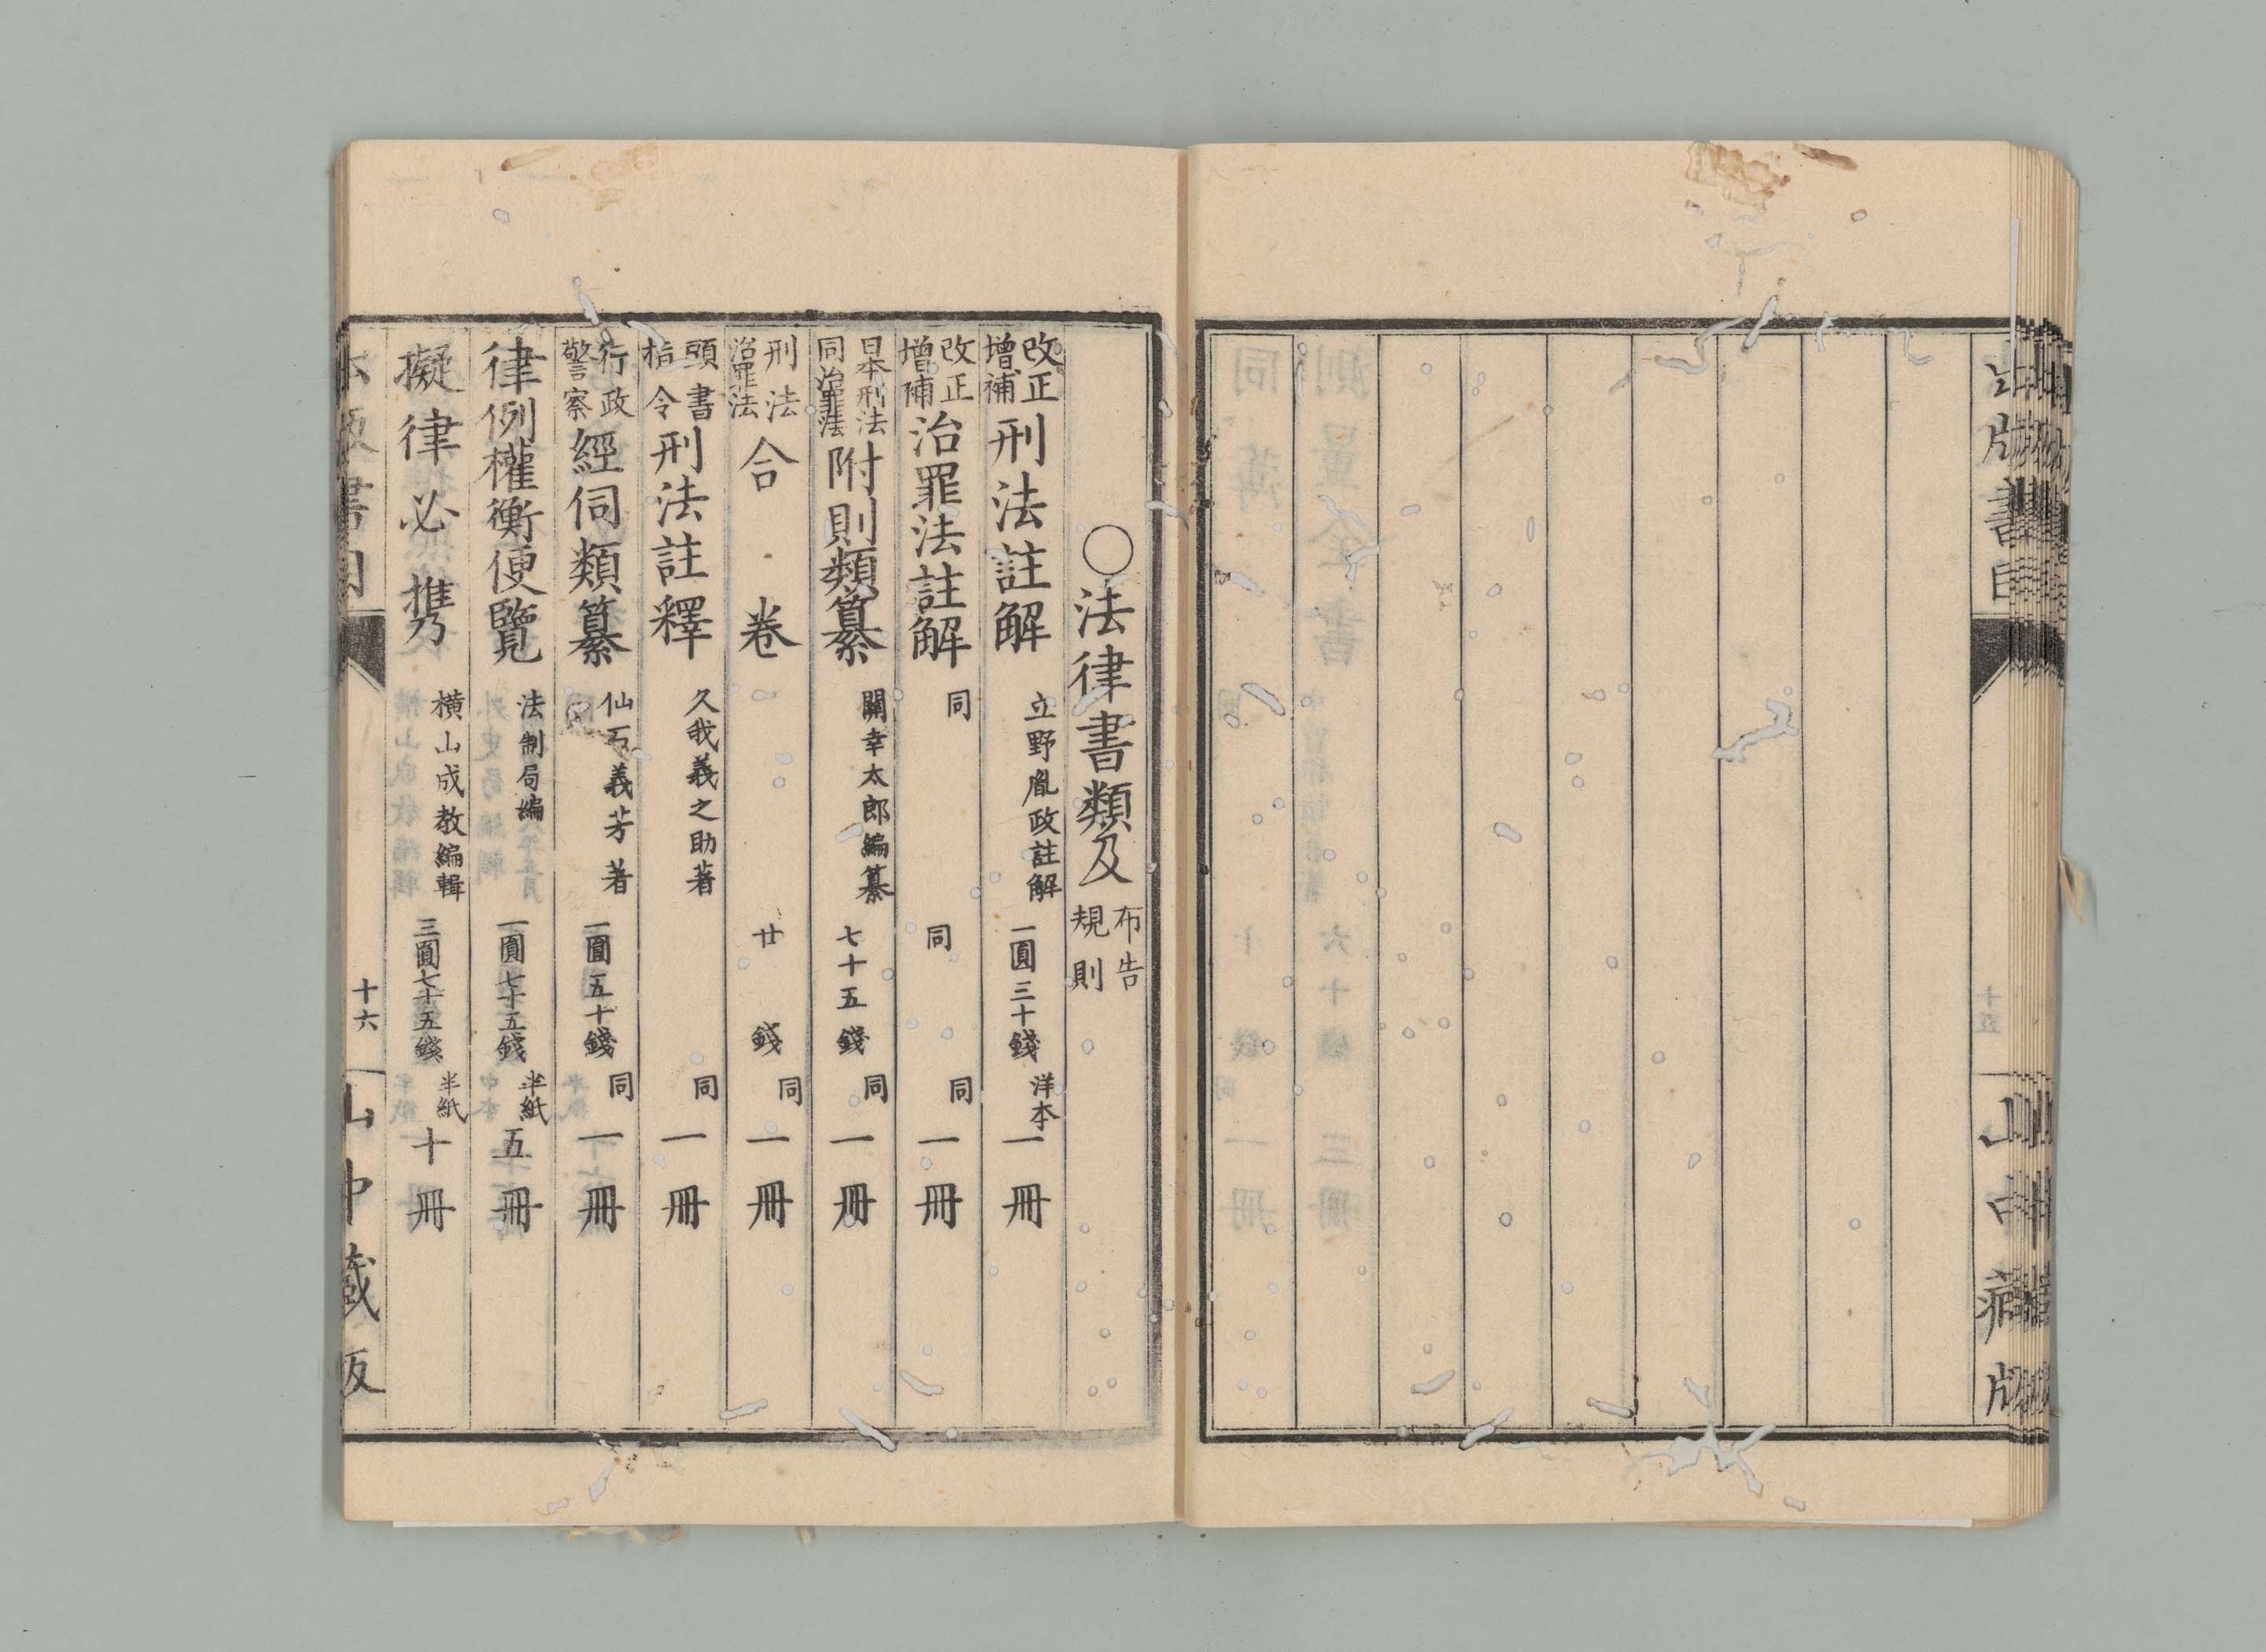 〇法律書類及布告規則
改正増補刑法註解 立野胤政註解 一圓三十錢 洋本 一冊
改正増補治罪法註解 同 同 同 一冊
日本刑法同治罪法附則類纂 關幸太郎編纂 七十五錢 同 一冊
刑法治罪法合卷 廿錢 同 一冊
頭書指令刑法註釋 久我義之助著 同 一冊
行政警察經伺類纂 仙石義芳著 一圓五十錢 同 一冊
律例權衡便覽 法制局編 一圓七十五錢 半紙 五冊
擬律必携 横山成教編輯 三圓七十五錢 半紙 十冊
十六